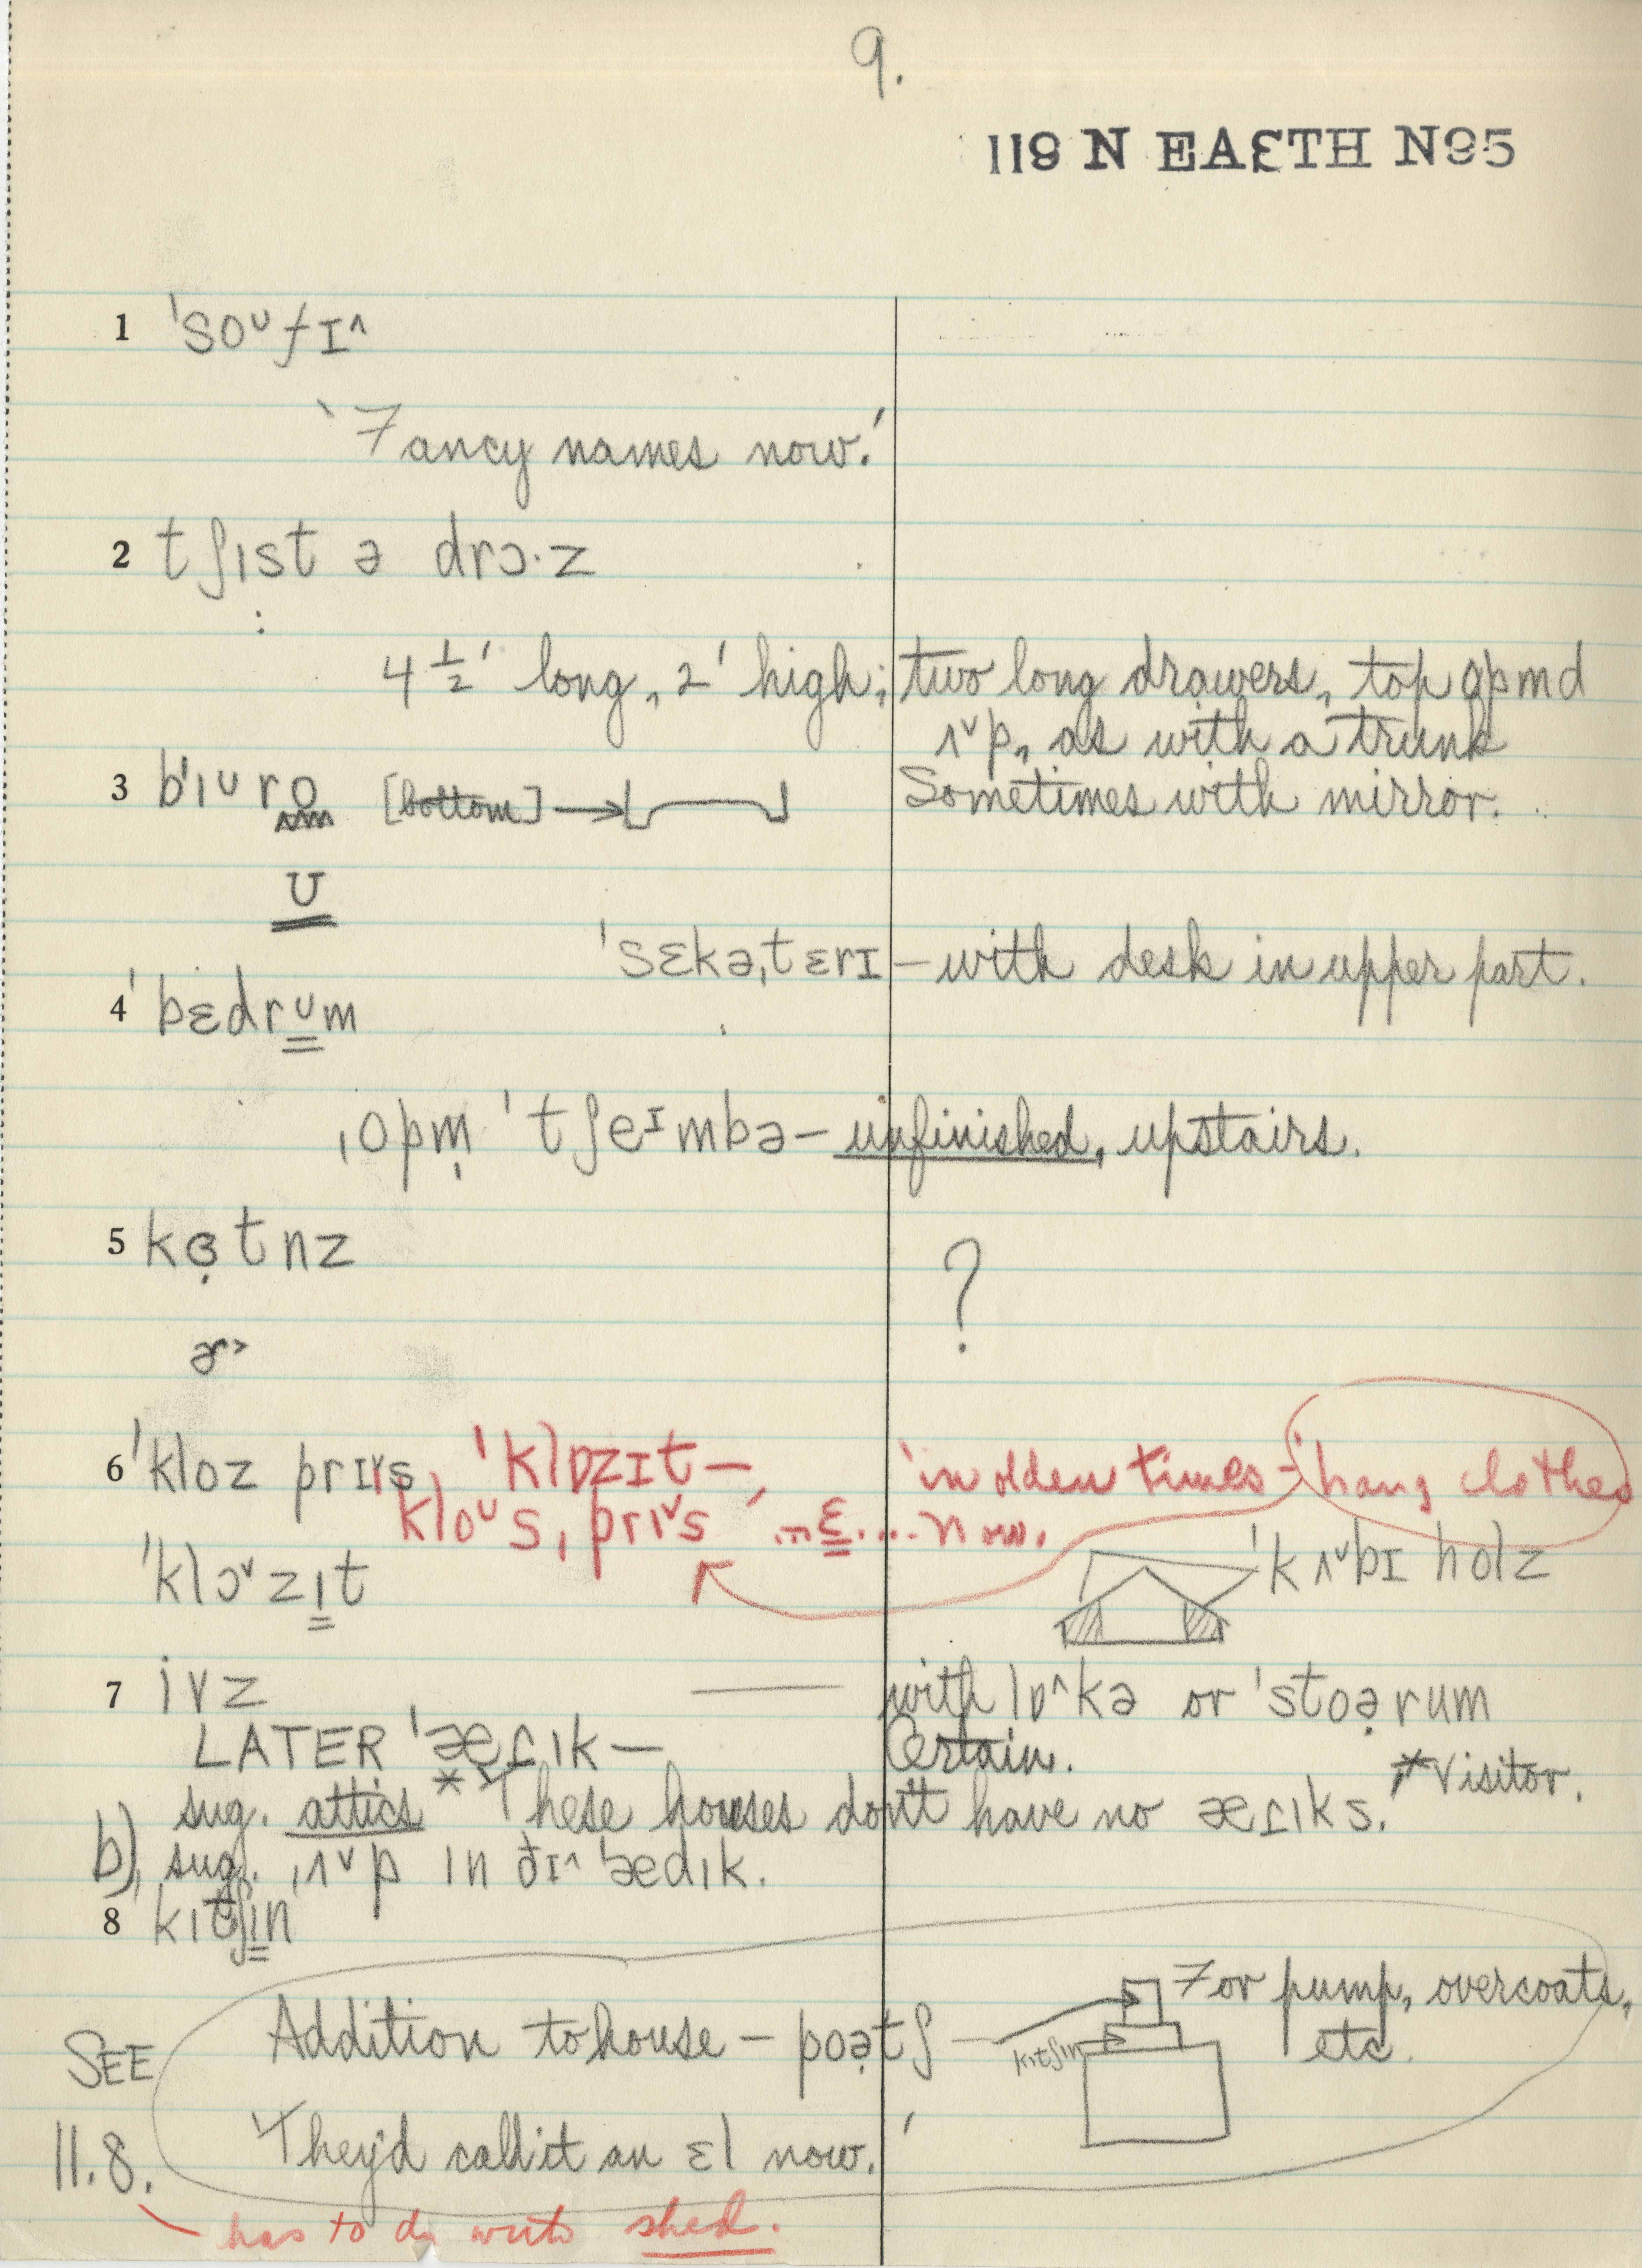 9.
119 N EAƐTH N95
1 ˈsoᵁfɪ^
'Fancy names now.'
2 tʃɪst ə drɔ·z
4 1/2' long, 2' high; two long drawers, top opmd
ʌ˅p, as with a trunk
3 bˈɪʊro [bottom] → Sometimes with mirror.
ʊ
ˈsɛkəˌtɛrɪ – with desk in upper part.
4 ˈbɛdrʊm
ˌopm̩ ˈtʃeᶦmbə – unfinished, upstairs.
5 kɞ̣tnz ?
ɚ>
6 ˈkloz prɪ˅s ˈklɒzɪt – 'in olden times – hang clothes
kloᵁs ˌprɪ˅s ' ..n ɛ.... now.
ˈklɔ˅zɪt ˈkʌ˅bɪ holz
7 ivz — with lɒ^kə or ˈstoə̣rum
LATER ˈæṭɪk – Certain. * Visitor.
sug. attics * 'These houses don't have no æṭɪks.
b) sug. ˌʌ˅p ɪn ðɪ^ ˈædɪk.
8 kɪtʃɪn
For pump, overcoats,
Addition to house – poə̣tʃ kɪtʃɪn etc.
SEE
11.8. 'They'd call it an ɛl now.'
has to do with shed.